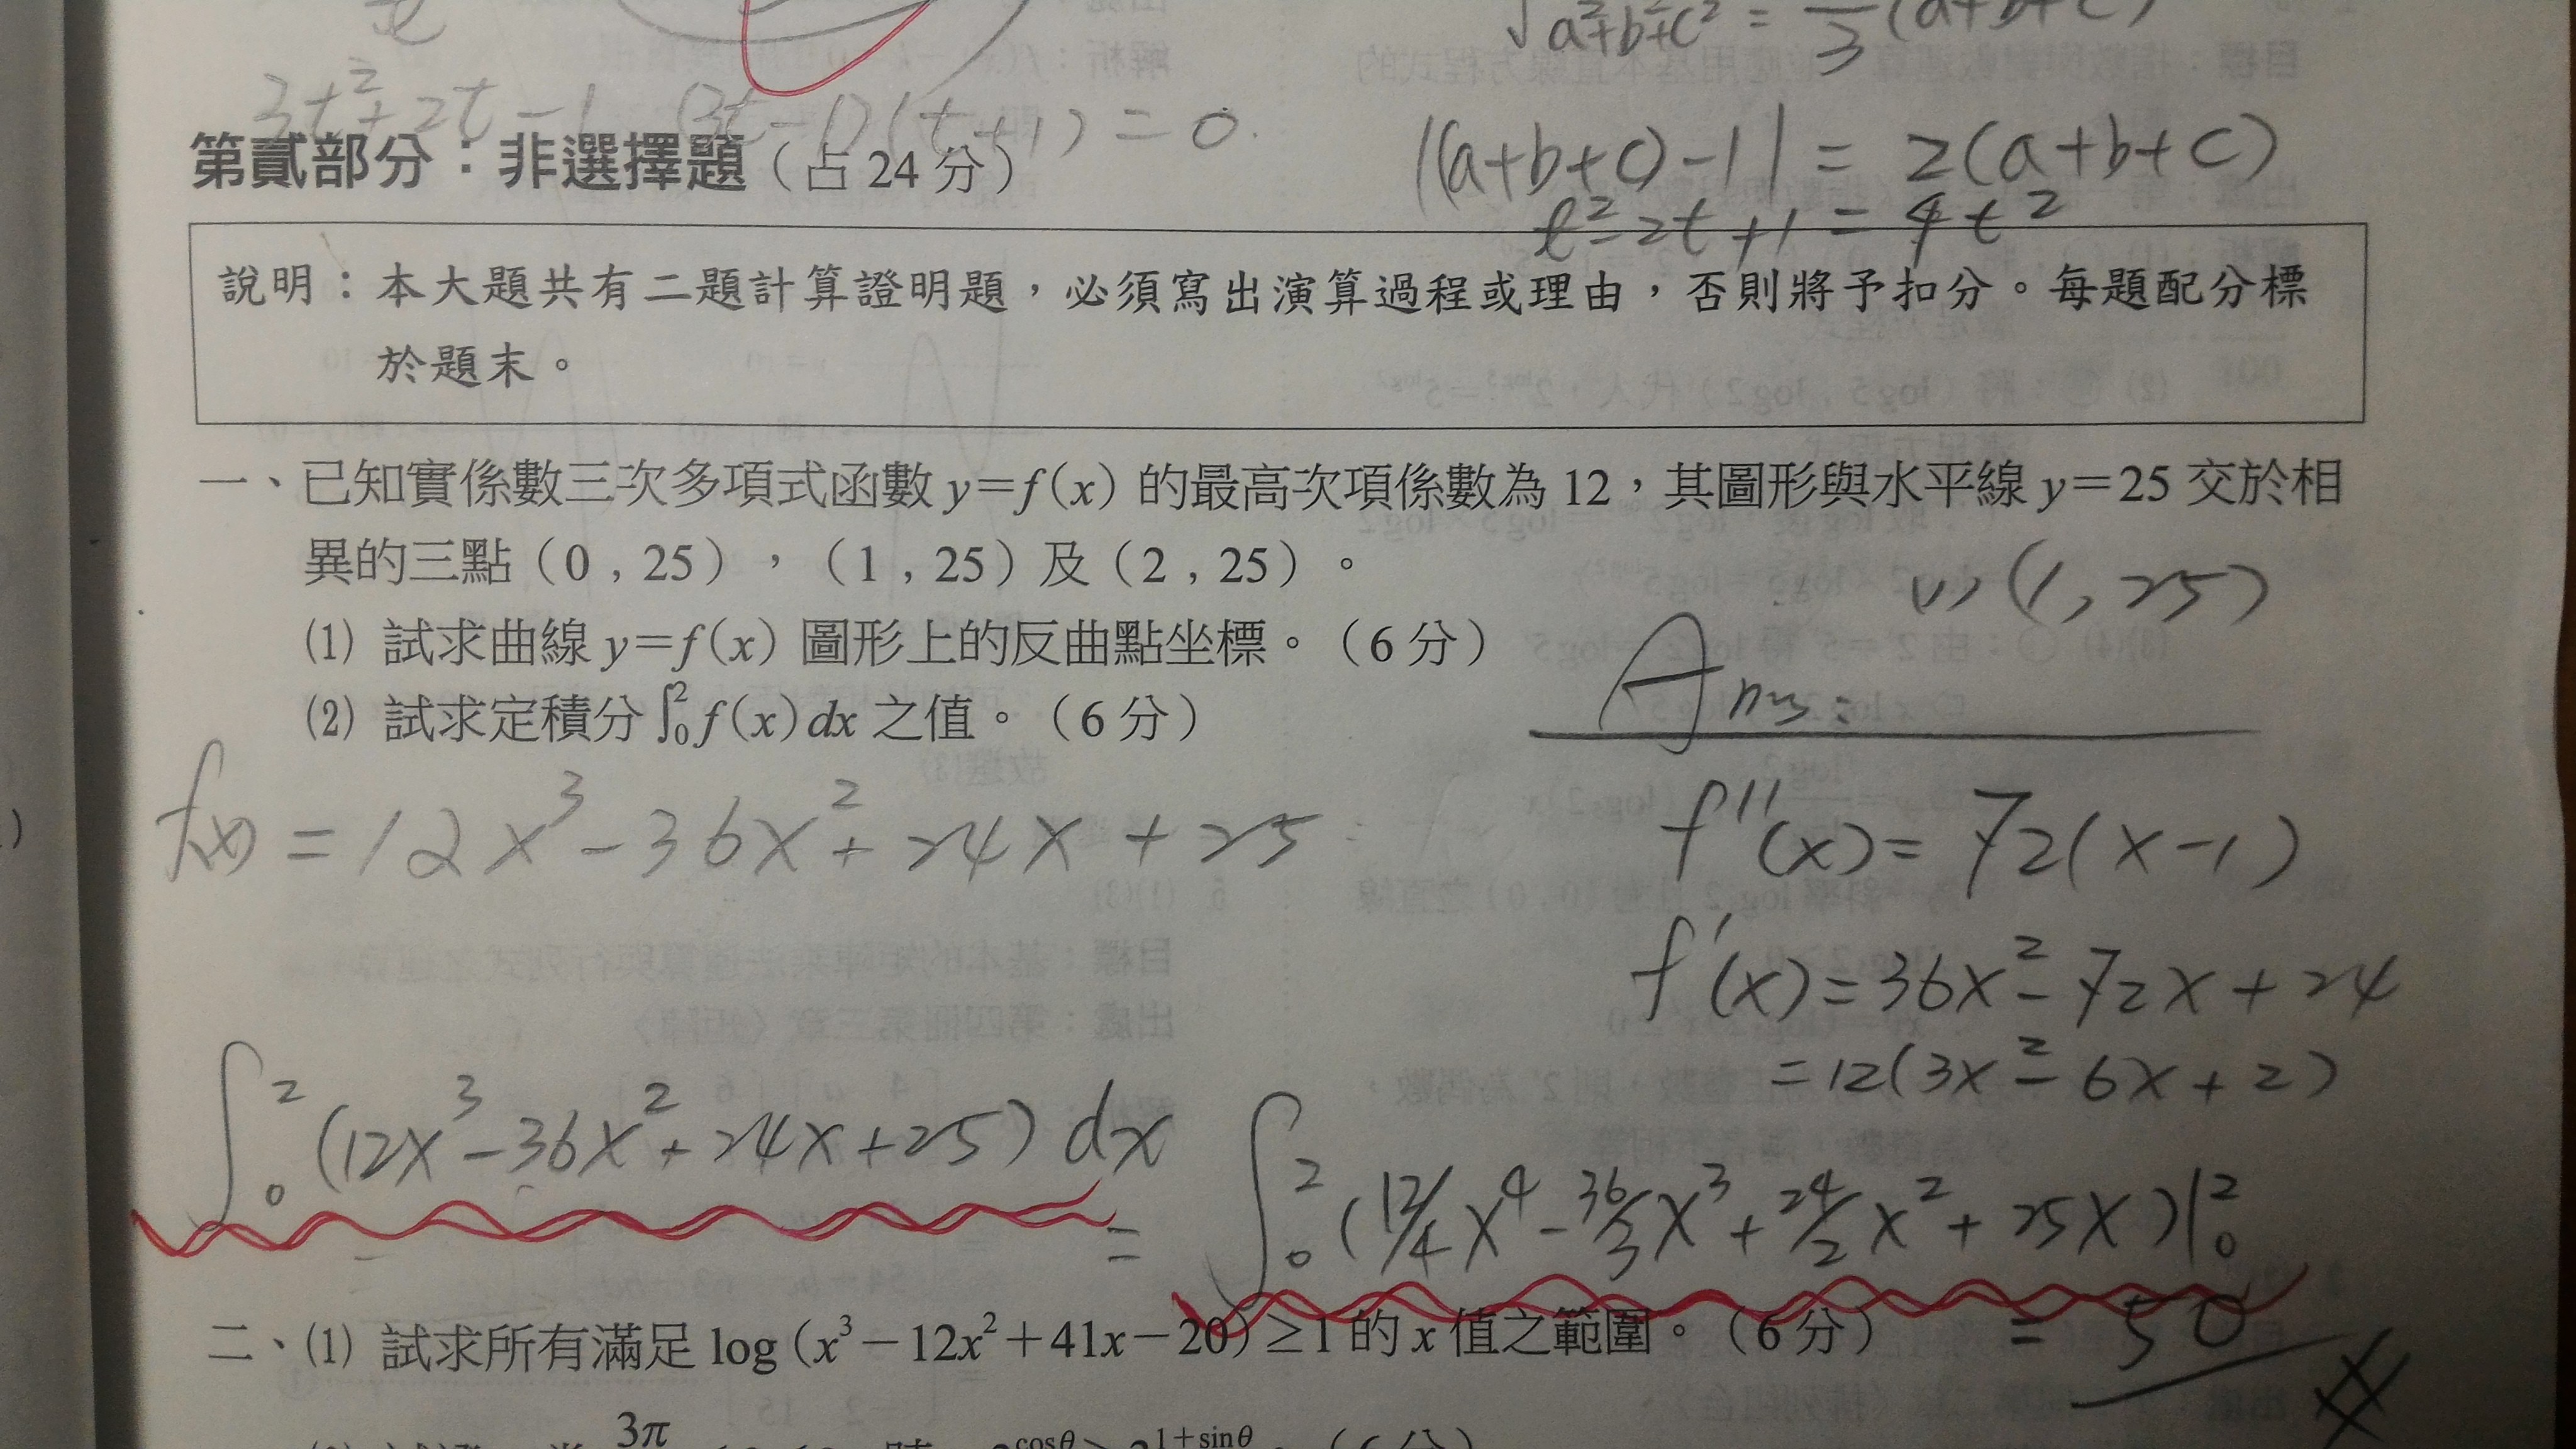 √a²+b²+c² = /3 (a+b+c)
3t²+2t-1 (3t-1)(t+1)=0.
|(a+b+c)-1| = 2(a+b+c)
t²-2t+1 = 4t²
第貳部分：非選擇題（占 24 分）
說明：本大題共有二題計算證明題，必須寫出演算過程或理由，否則將予扣分。每題配分標
於題末。
一、已知實係數三次多項式函數 y=f(x) 的最高次項係數為 12，其圖形與水平線 y=25 交於相
異的三點（0 , 25），（1 , 25）及（2 , 25）。
(1) (1, 25)
⑴ 試求曲線 y=f(x) 圖形上的反曲點坐標。（6 分）
Ans:
⑵ 試求定積分 ∫₀² f(x)dx 之值。（6 分）
f(x) = 12x³-36x²+24x+25
f''(x)= 72(x-1)
f'(x)=36x²-72x+24
=12(3x²-6x+2)
∫₀² (12x³-36x²+24x+25) dx
= ∫₀² (12/4 x⁴ - 36/3 x³ + 24/2 x² + 25x)|₀²
= 50
二、⑴ 試求所有滿足 log (x³-12x²+41x-20)≥1 的 x 值之範圍。（6 分）
3π cosθ 1+sinθ